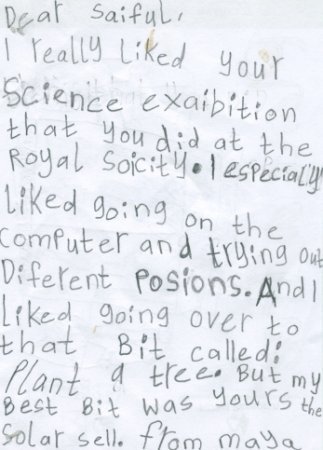 Dear Saiful,
I really liked your
Science exaibition
that you did at the
Royal Soicity. I especially
liked going on the
computer and trying out
Diferent Posions. And I
liked going over to
that Bit called:
Plant a tree. But my
Best Bit was yours the
Solar sell. from maya